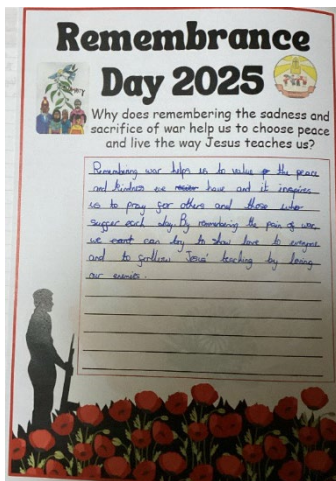 Remembrance
Day 2025
Why does remembering the sadness and
sacrifice of war help us to choose peace
and live the way Jesus teaches us?
Remembering war helps us to value the peace
and kindness we have and it inspires
us to pray for others and those who
suffer each day. By remembering the pain of war,
we can try to show love to everyone
and to follow Jesus' teaching by loving
our enemies.